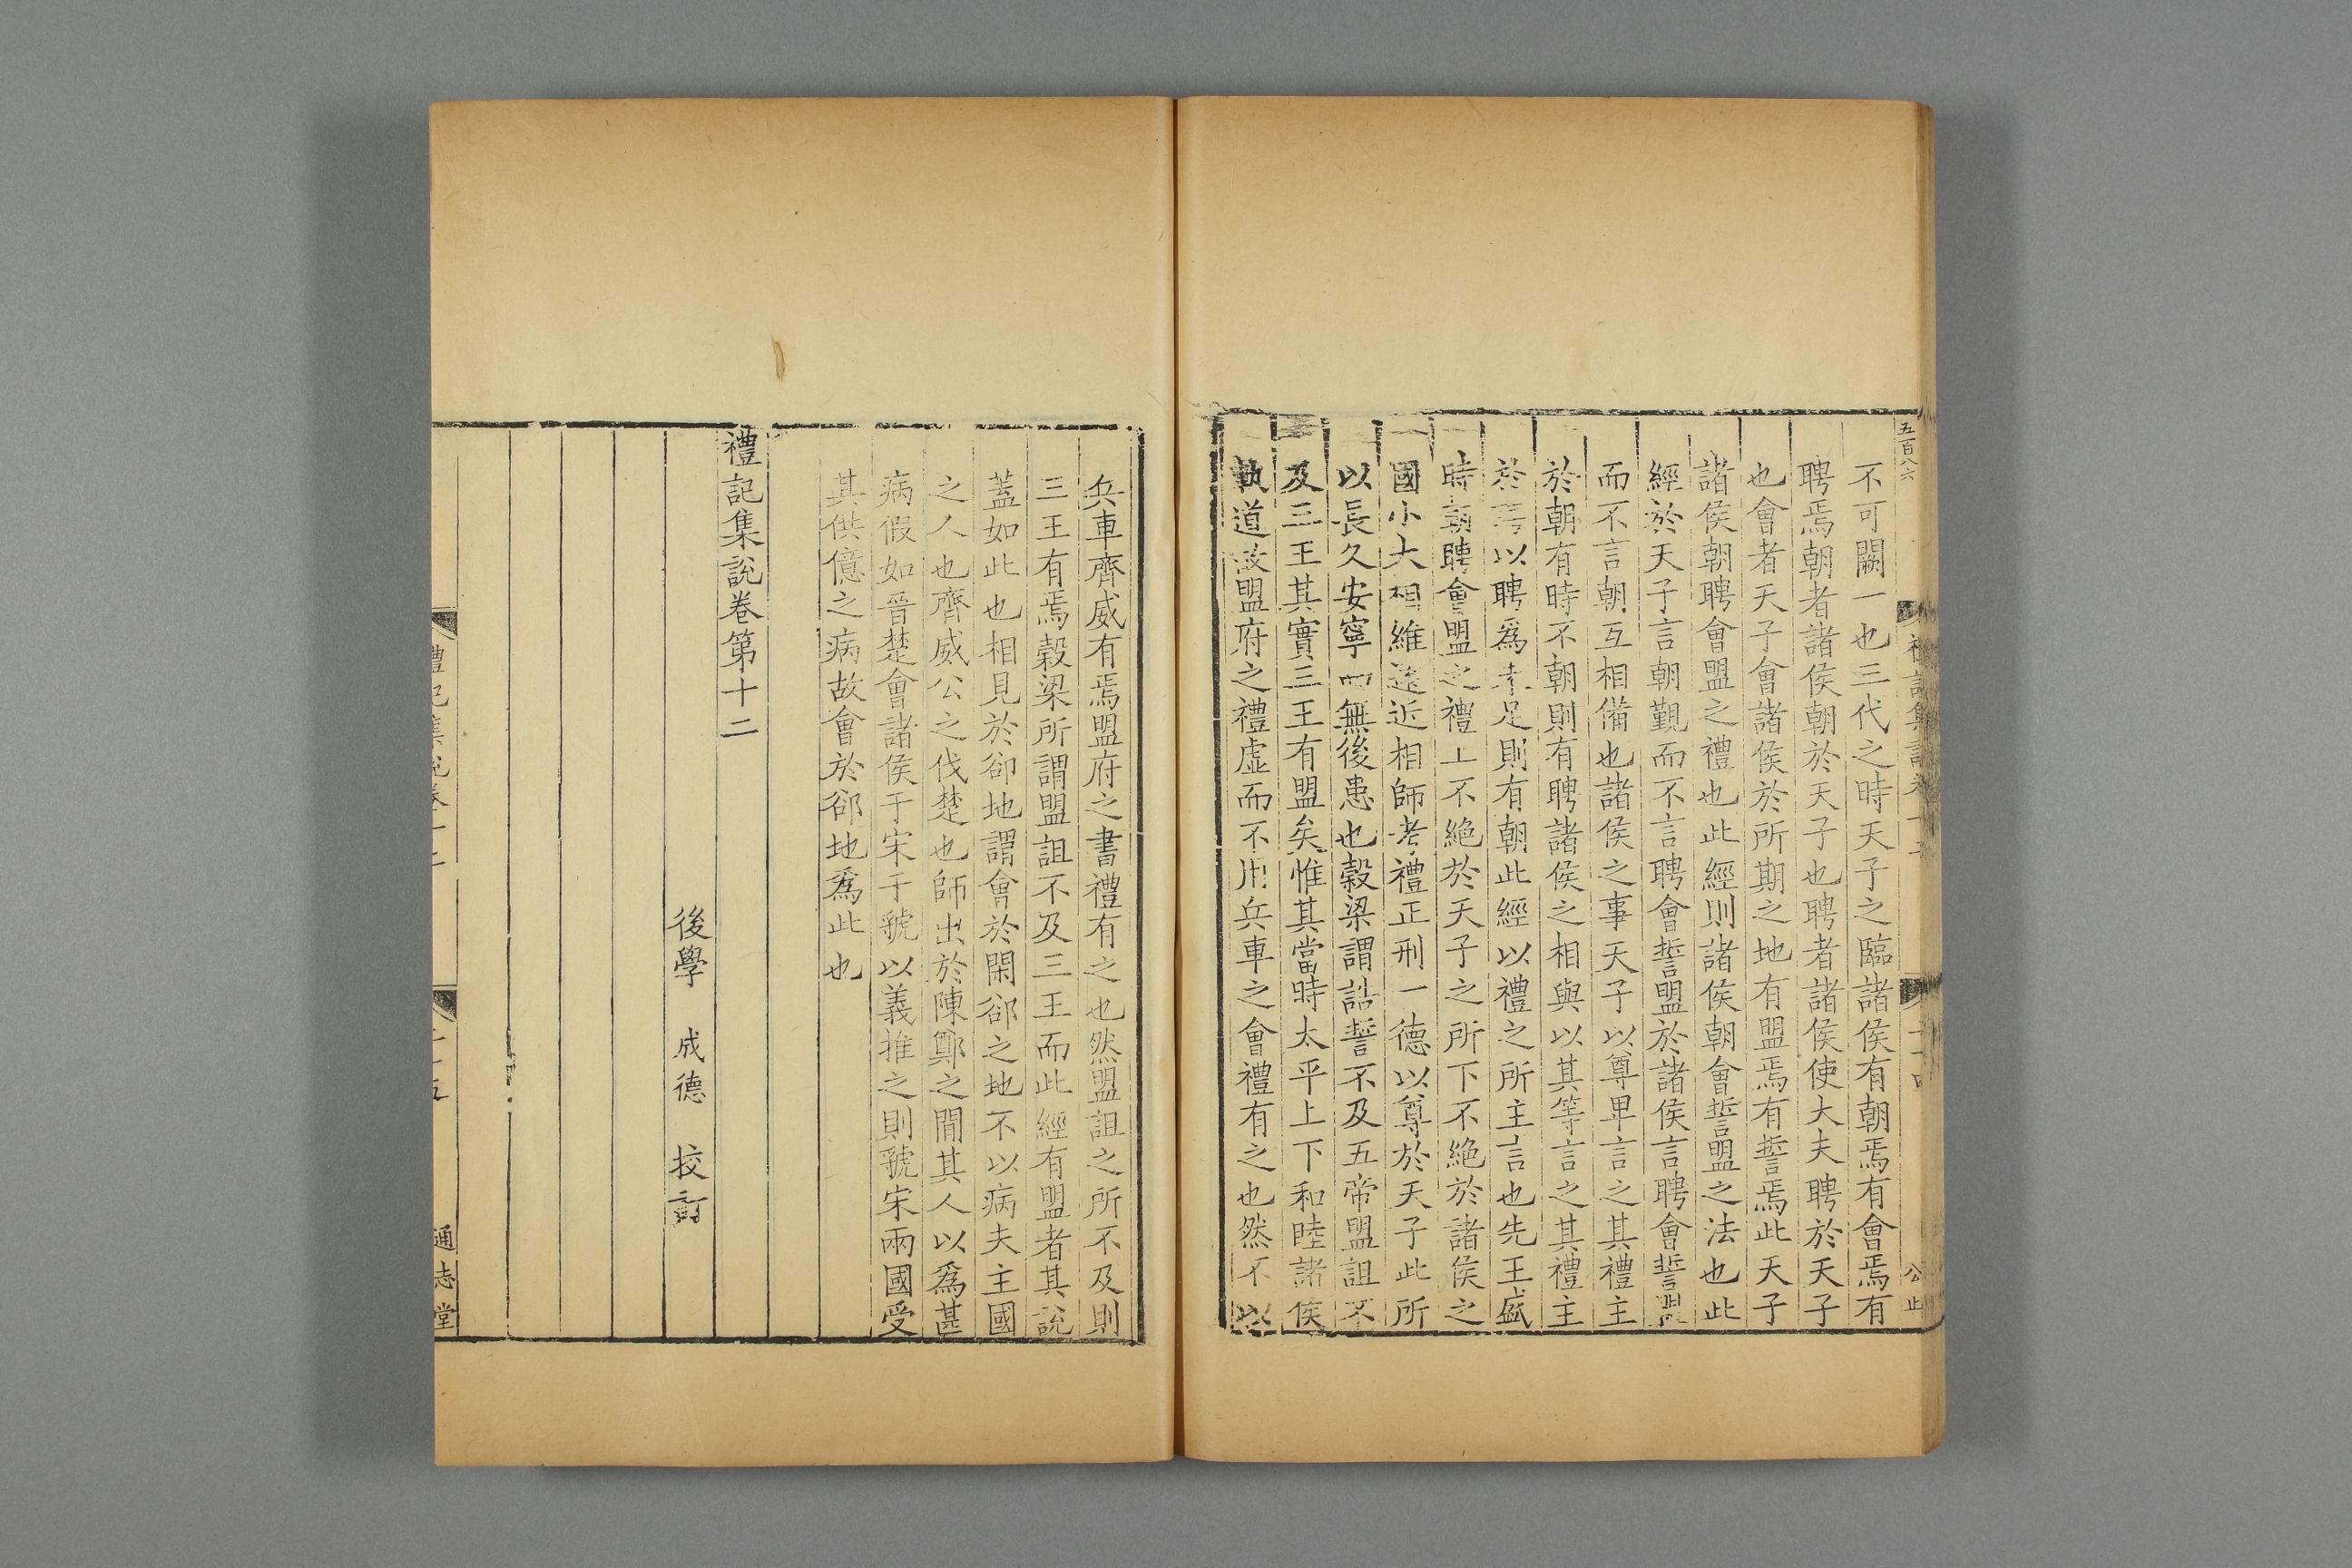 五百八六
不可闕一也三代之時天子之臨諸侯有朝焉有會焉有
聘焉朝者諸侯朝於天子也聘者諸侯使大夫聘於天子
也會者天子會諸侯於所期之地有盟焉有誓焉此天子
諸侯朝聘會盟之禮也此經則諸侯朝會誓盟之法也此
經於天子言朝覲而不言聘會誓盟於諸侯言聘會誓盟
而不言朝互相備也諸侯之事天子以尊卑言之其禮主
於朝有時不朝則有聘諸侯之相與以其等言之其禮主
於聘以聘爲未足則有朝此經以禮之所主言也先王盛
時朝聘會盟之禮上不絶於天子之所下不絶於諸侯之
國小大相維遠近相師考禮正刑一德以尊於天子此所
以長久安寧而無後患也穀梁謂誥誓不及五帝盟詛不
及三王其實三王有盟矣惟其當時太平上下和睦諸侯
執道故盟府之禮虛而不用兵車之會禮有之也然不以
兵車齊威有焉盟府之書禮有之也然盟詛之所不及則
三王有焉穀梁所謂盟詛不及三王而此經有盟者其說
蓋如此也相見於郤地謂會於閑郤之地不以病夫主國
之人也齊威公之伐楚也師出於陳鄭之閒其人以爲甚
病假如晉楚會諸侯于宋于虢以義推之則虢宋兩國受
其供億之病故會於郤地爲此也
禮記集說卷第十二
後學 成德 挍訂
禮記集說卷十二
通志堂